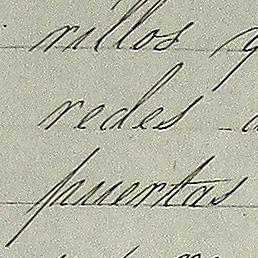 rillos
redes
puertas